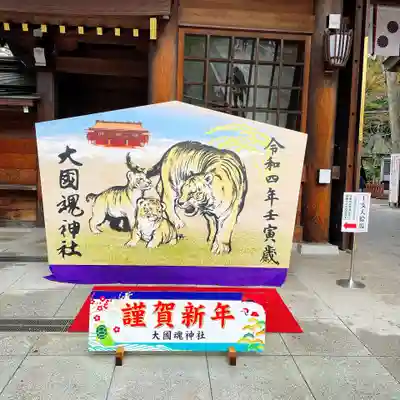 令和四年壬寅歳
大國魂神社
謹賀新年
大國魂神社